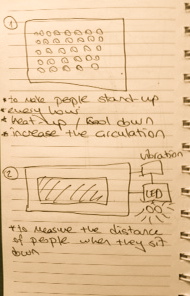 1
* to make people stand-up
* every hour
* heat-up / cool down
* increase the circulation
vibration
2
LED
* to measure the distance
of people when they sit
down